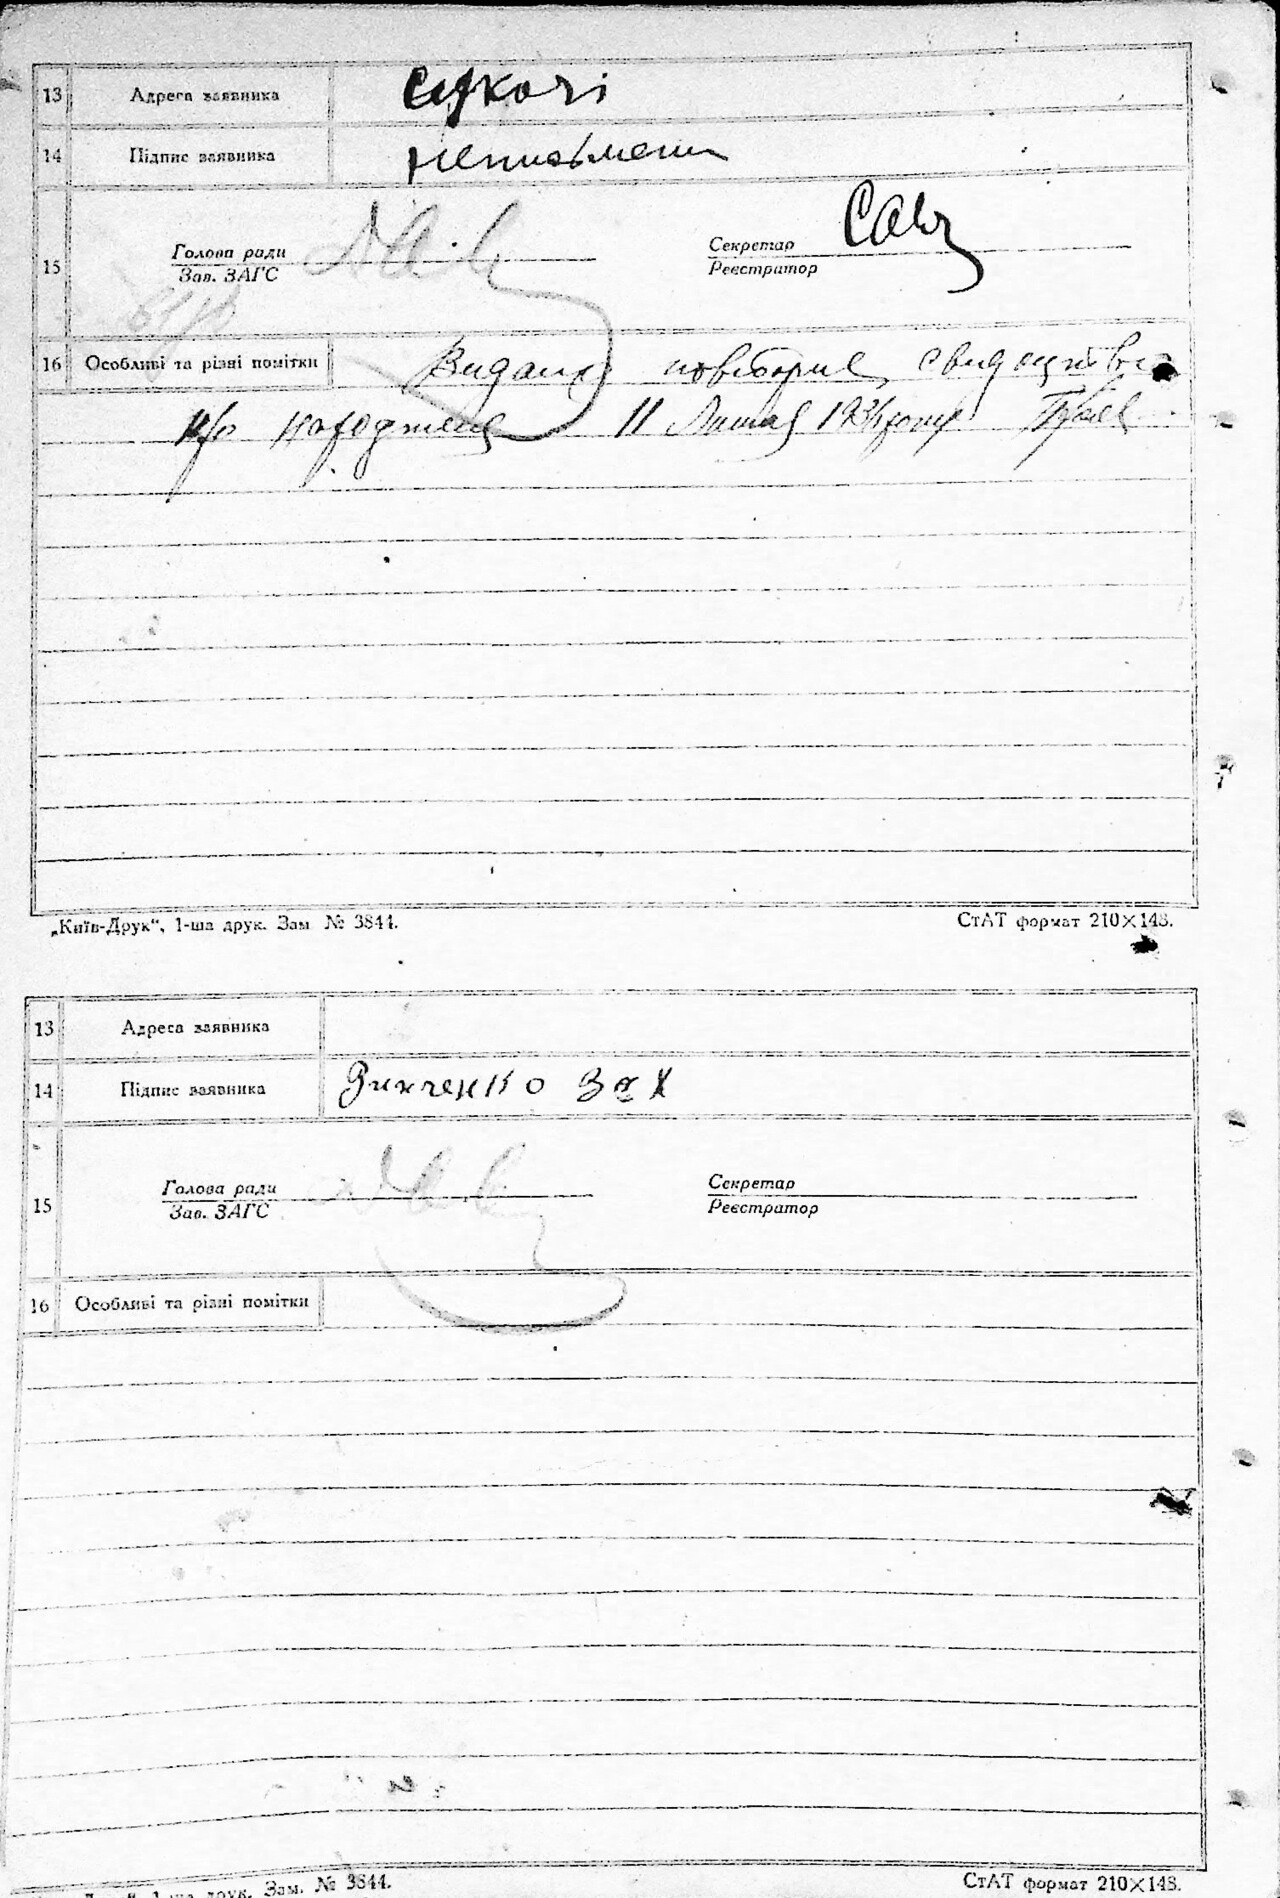 13 Адреса заявника Сукачі
14 Підпис заявника неписьмен
15 Голова ради Секретар
Зав. ЗАГС Реєстратор
16 Особливі та різні помітки Видано повторне свидоцтво
про народження 11 Липня 1934 року
„Київ-Друк“, 1-ша друк. Зам № 3844. СтАТ формат 210×148.
13 Адреса заявника
14 Підпис заявника Зинченко Зах
15 Голова ради Секретар
Зав. ЗАГС Реєстратор
16 Особливі та різні помітки
друк. Зам. № 3844. СтАТ формат 210×148.